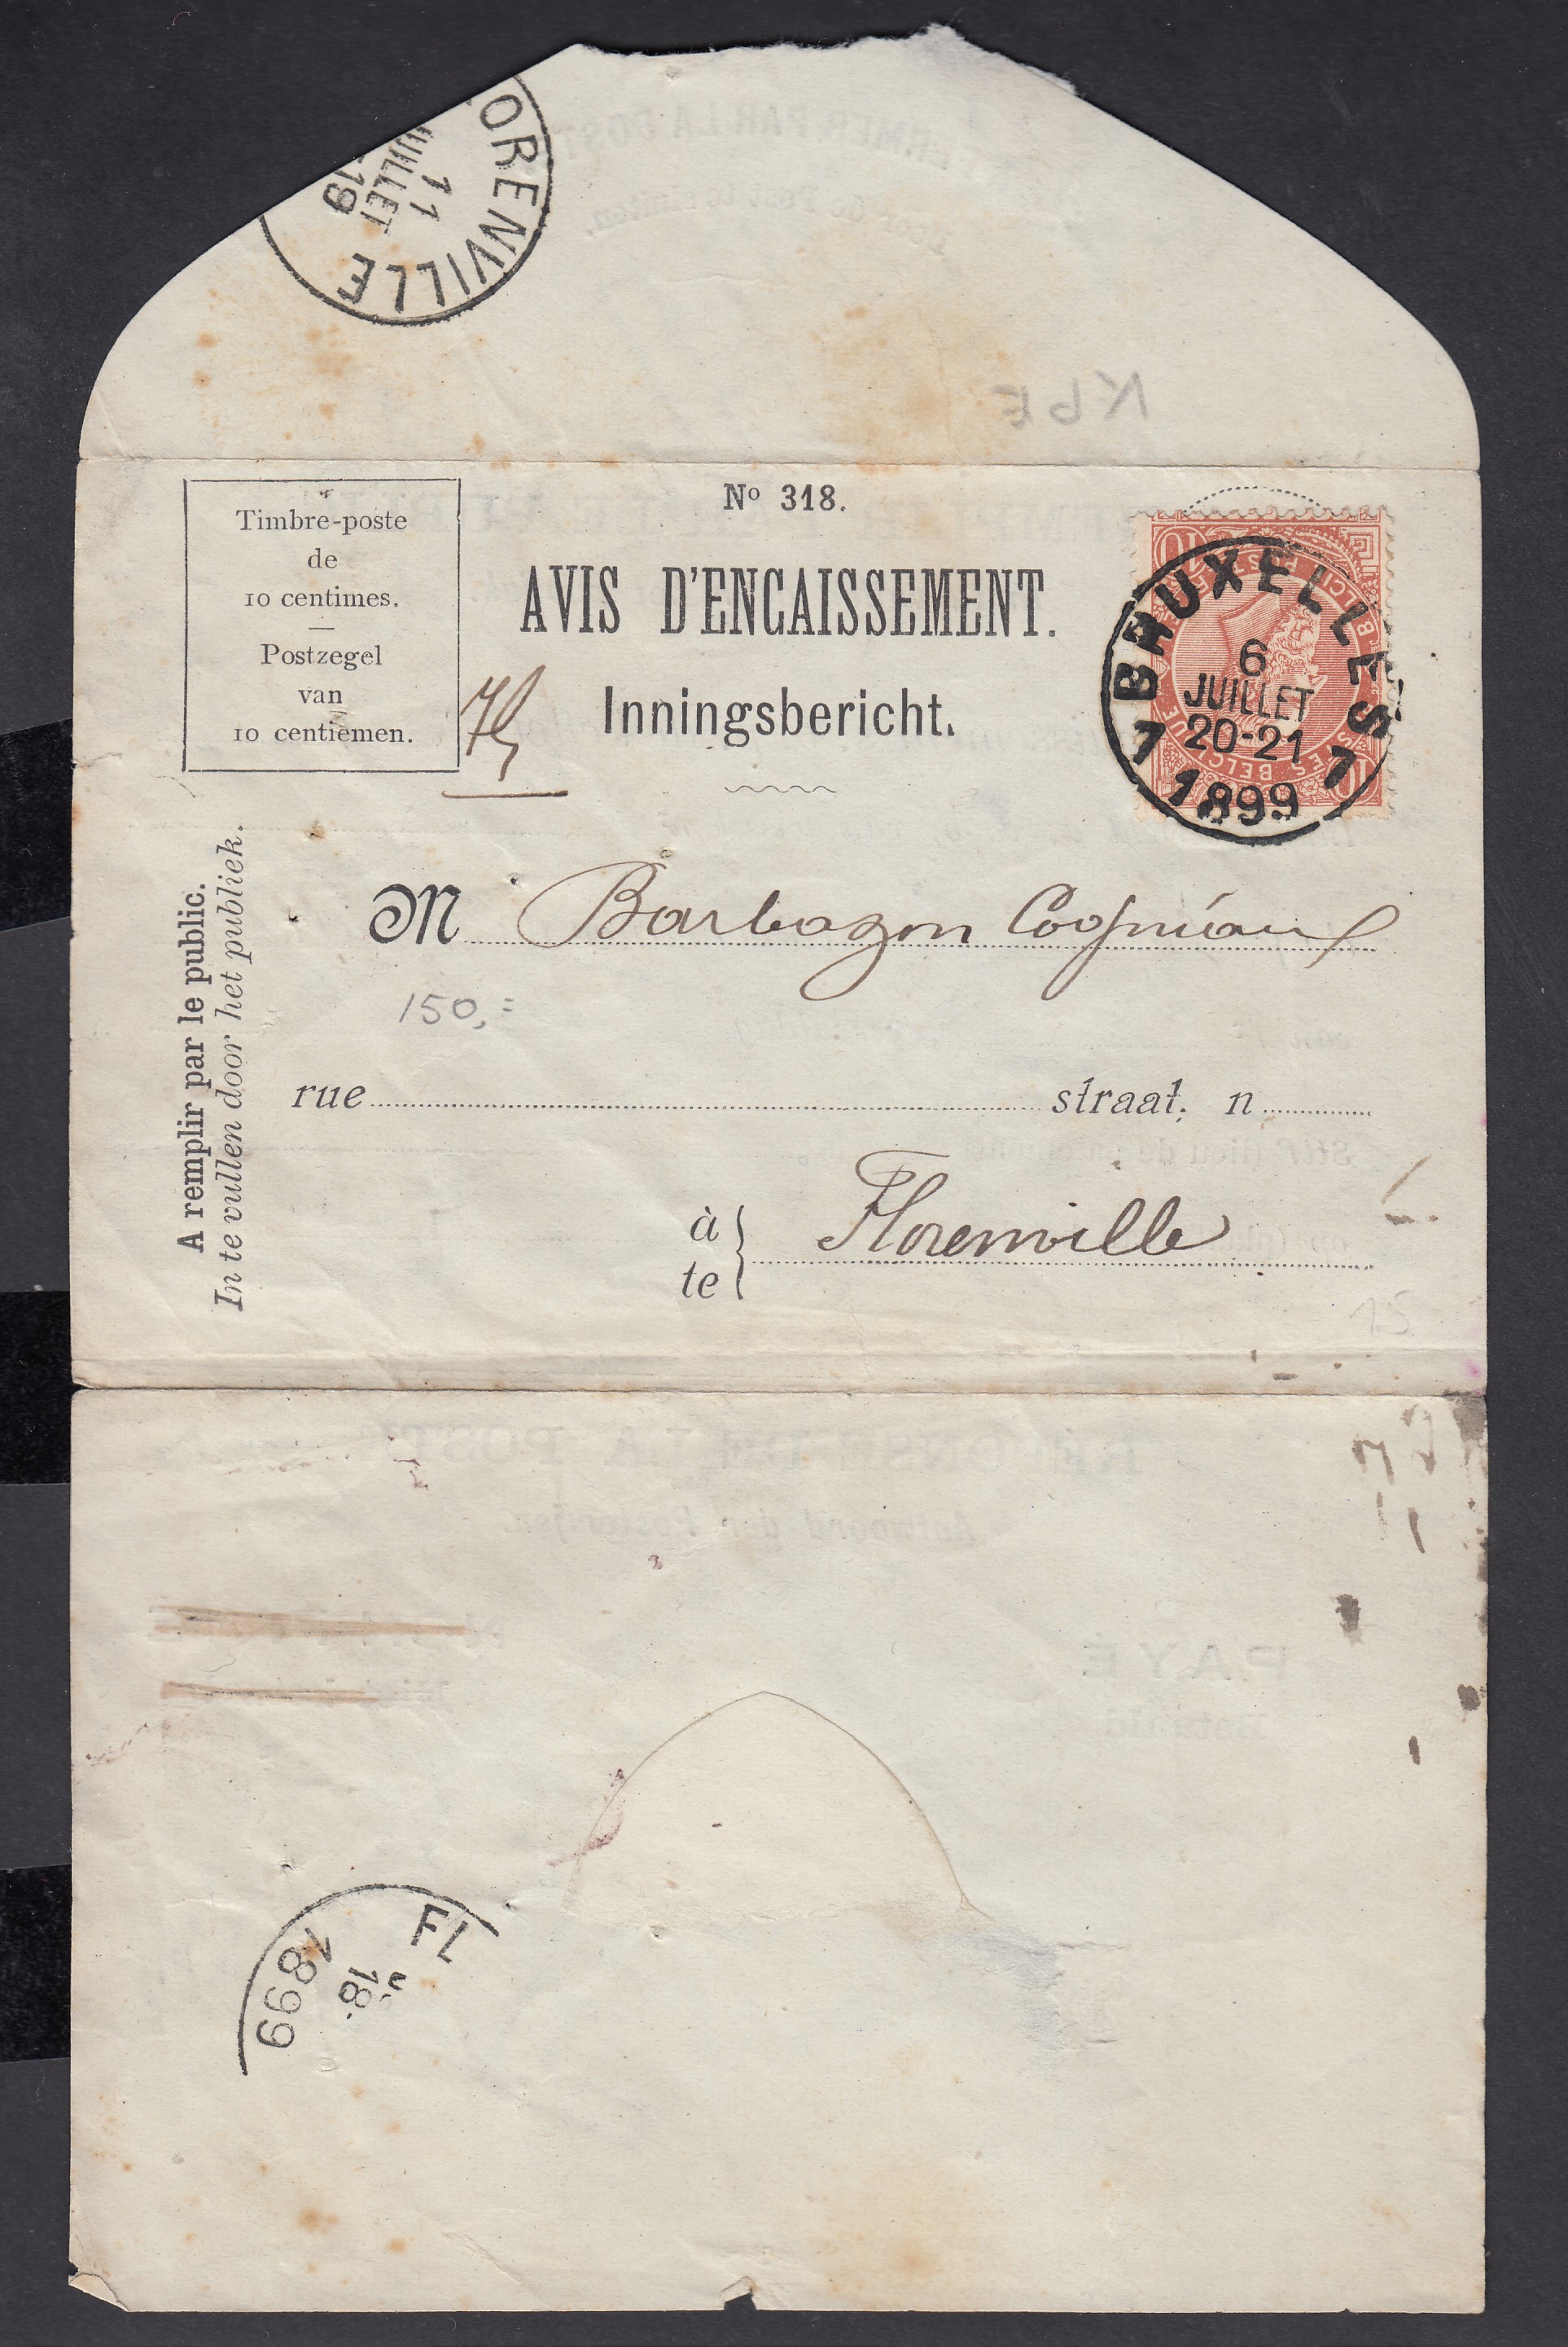 ORENVILLE
11
JUILLET
-19
KPE
Timbre-poste
de
10 centimes.
Postzegel
van
10 centiemen.
Nº 318.
AVIS D'ENCAISSEMENT.
Inningsbericht.
BRUXELLES
6
JUILLET
20-21
1 1899 1
A remplir par le public.
In te vullen door het publiek.
M Barbazon Cognіaux
150,=
rue straat, n
à
te
Florenville
15
PAYÉ
FL
18
1899